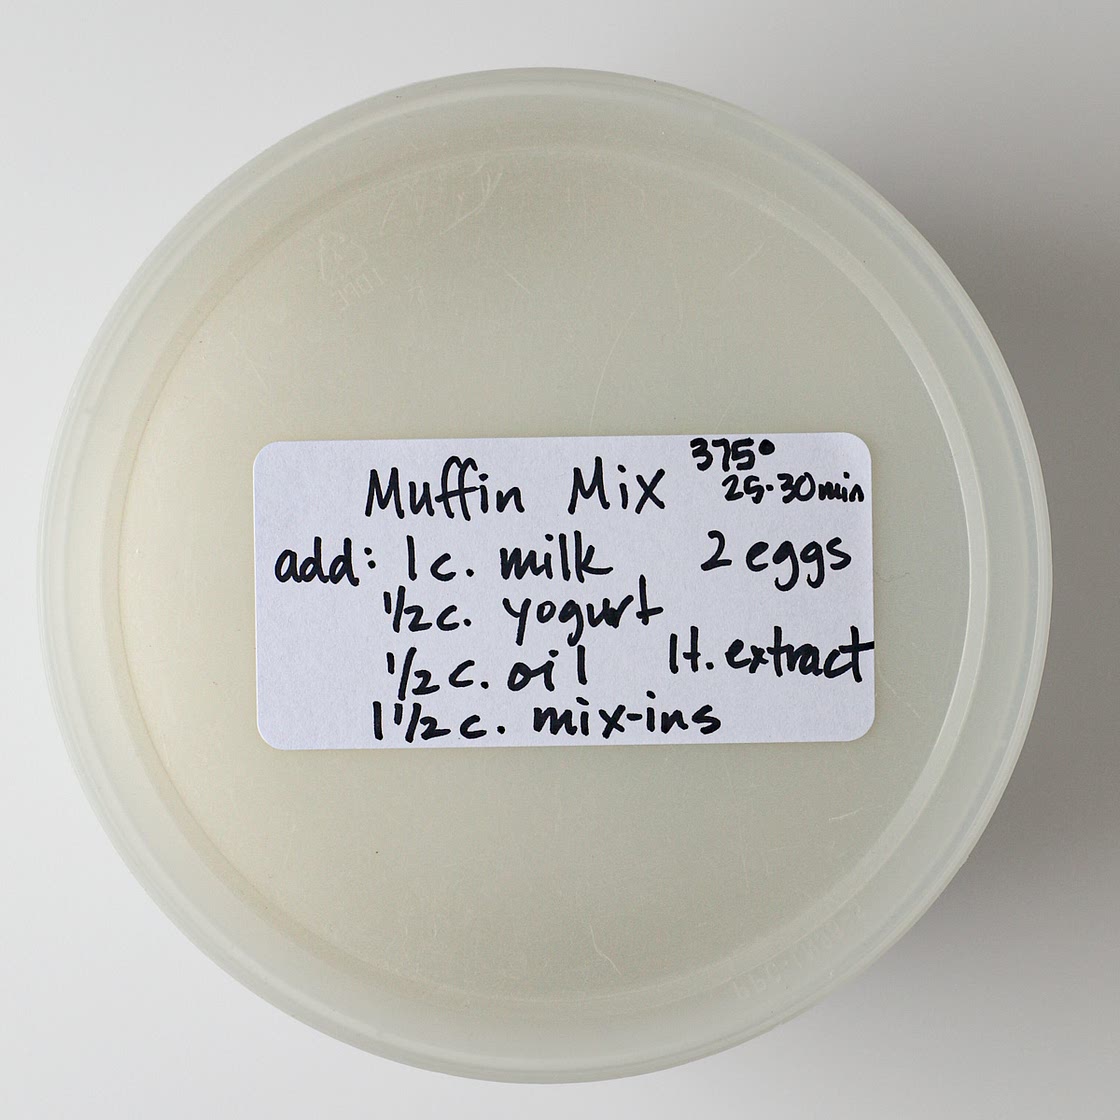 Muffin Mix 375°
25-30 min
add: 1 c. milk 2 eggs
1/2 c. yogurt
1/2 c. oil 1 t. extract
1 1/2 c. mix-ins